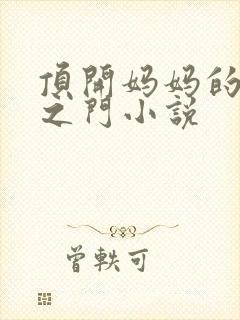 頂開妈妈的
之門小説
曾軼可